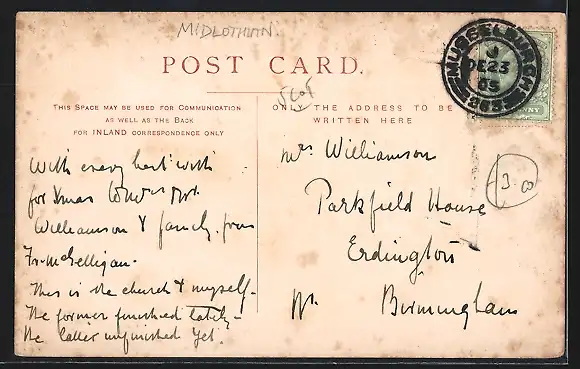 MIDLOTHIAN
POST CARD.
THIS SPACE MAY BE USED FOR COMMUNICATION
AS WELL AS THE BACK
FOR INLAND CORRESPONDENCE ONLY
With every best wish
for Xmas to Mr & Mrs.
Williamson & family. from
Fr. McGelligan.
This is the church & myself.
The former finished lately -
the latter unfinished yet.
ONLY THE ADDRESS TO BE
WRITTEN HERE
Mrs Williamson
Parkfield House
Erdington
Nr. Birmingham
MUSSELBURGH
DE 23
05